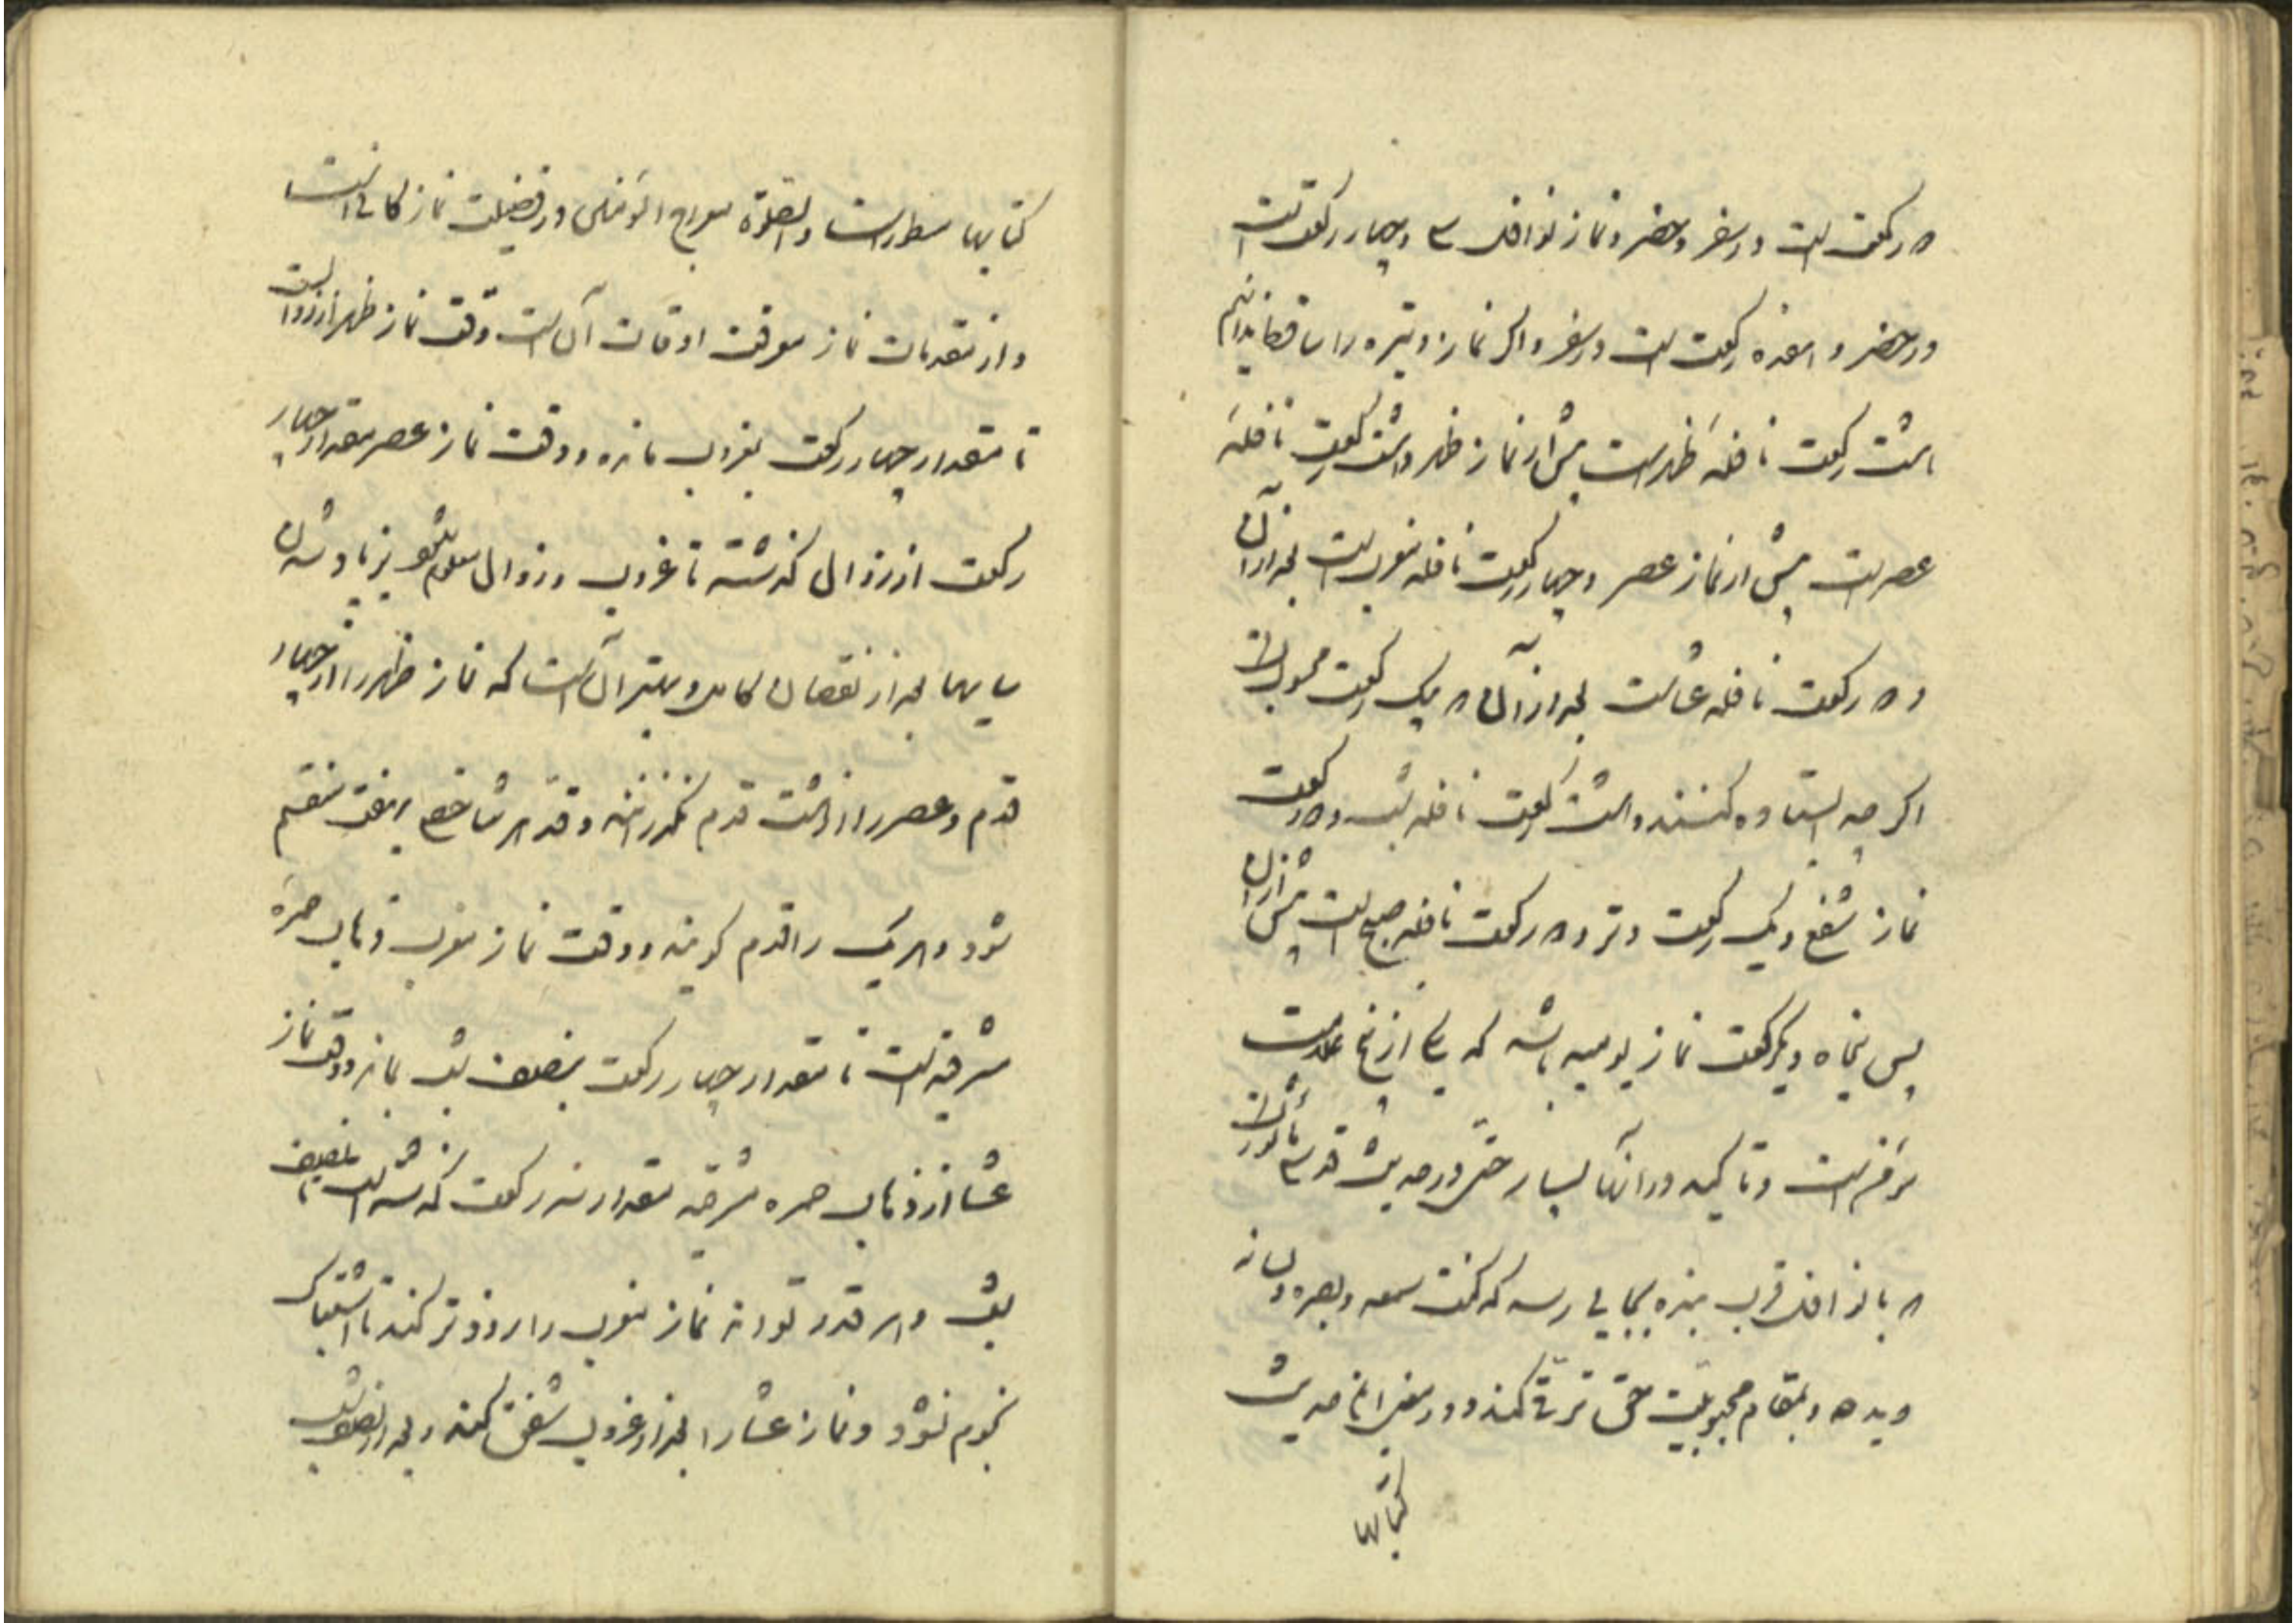 دو رکعت است در سفر و حضر و نماز نوافل سی و چهار رکعت است
در حضر و هفده رکعت است در سفر و اگر نماز وتیره را ساقط ندانیم
هشت رکعت نافلهٔ ظهر است پیش از نماز ظهر و هشت رکعت نافلهٔ
عصر است پیش از نماز عصر و چهار رکعت نافله مغرب است بعد از آن
و دو رکعت نافله عشا است بعد از آن که یک رکعت محسوب است
اگرچه ایستاده کنند و هشت رکعت نافله شب و دو رکعت
نماز شفع و یک رکعت وتر و دو رکعت نافله صبح است پیش از آن
پس پنجاه و یک رکعت نماز یومیه باشد که یکی از پنج علامت
مؤمن است و تاکید در آنها بسیار حتی در حدیث قدسی مأثور است
که با نوافل قرب بنده بجایی رسد که کنت سمعه و بصره و لسانه
و یده و بمقام محبوبیت حق ترقی کند و در بعضی احادیث
کتابها
کتابها مسطور است و الصلوة معراج المؤمن در فضیلت نماز کافی است
و از مقدمات نماز معرفت اوقات آن است وقت نماز ظهر از زوال است
تا مقدار چهار رکعت بغروب مانده و وقت نماز عصر مقدار چهار
رکعت از زوال گذشته تا غروب و زوال معلوم شود بزیاد شدن
سایها بعد از نقصان کامل و بهتر آن است که نماز ظهر را از چهار
قدم و عصر را از هشت قدم نگذرانند و قد هر شاخص بهفت منقسم
شود و هر یک را قدم گویند و وقت نماز مغرب ذهاب حمره
مشرقیه است تا مقدار چهار رکعت بنصف شب بماند و وقت نماز
عشا از ذهاب حمره مشرقیه مقدار سه رکعت گذشته است تا نصف
شب و هر قدر تواند نماز مغرب را زودتر کند تا اشتباک
نجوم نشود و نماز عشا را بعد از غروب شفق کند و بعد از نصف شب